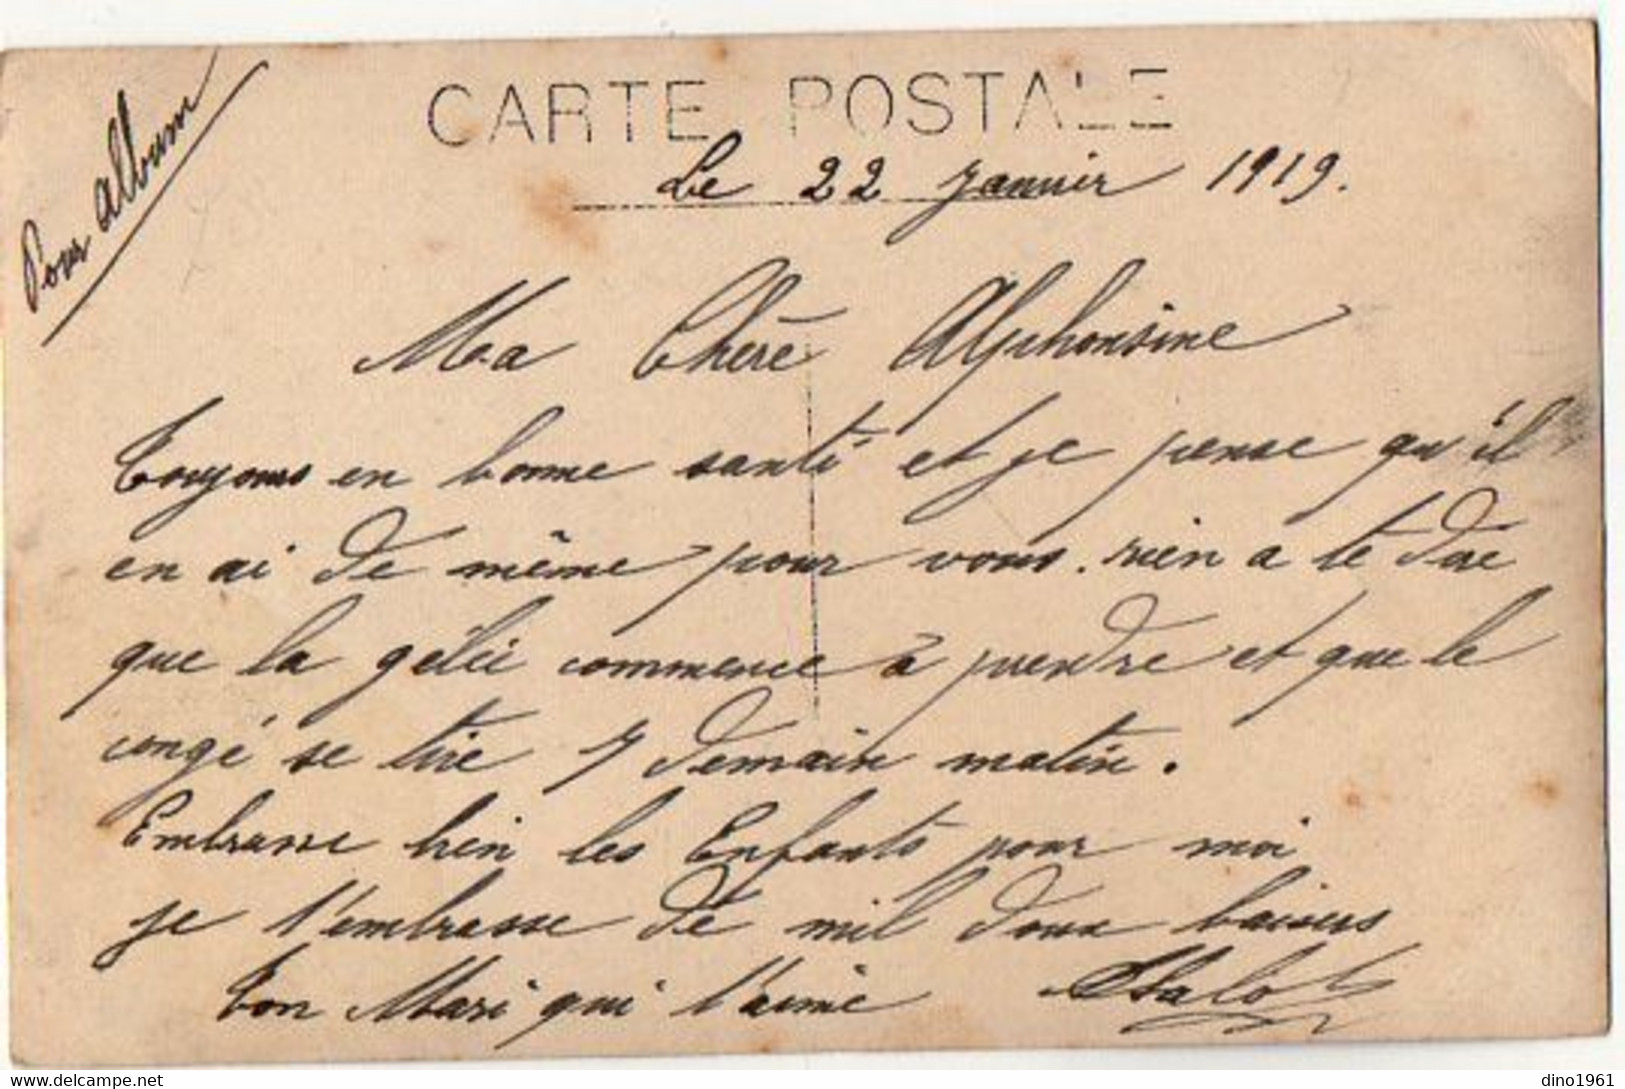 Pour album
CARTE POSTALE
Le 22 Janvier 1919.
Ma Chère Alphonsine
Toujours en bonne santé et je pense qu'il
en ai de même pour vous. rien a te dire
que la gélée commence à prendre et que le
congé se tire 7 demain matin.
Embrasse bien les Enfants pour moi
je t'embrasse de mil doux baisers
Ton Mari qui t'aime
delcampe.net
dino1961